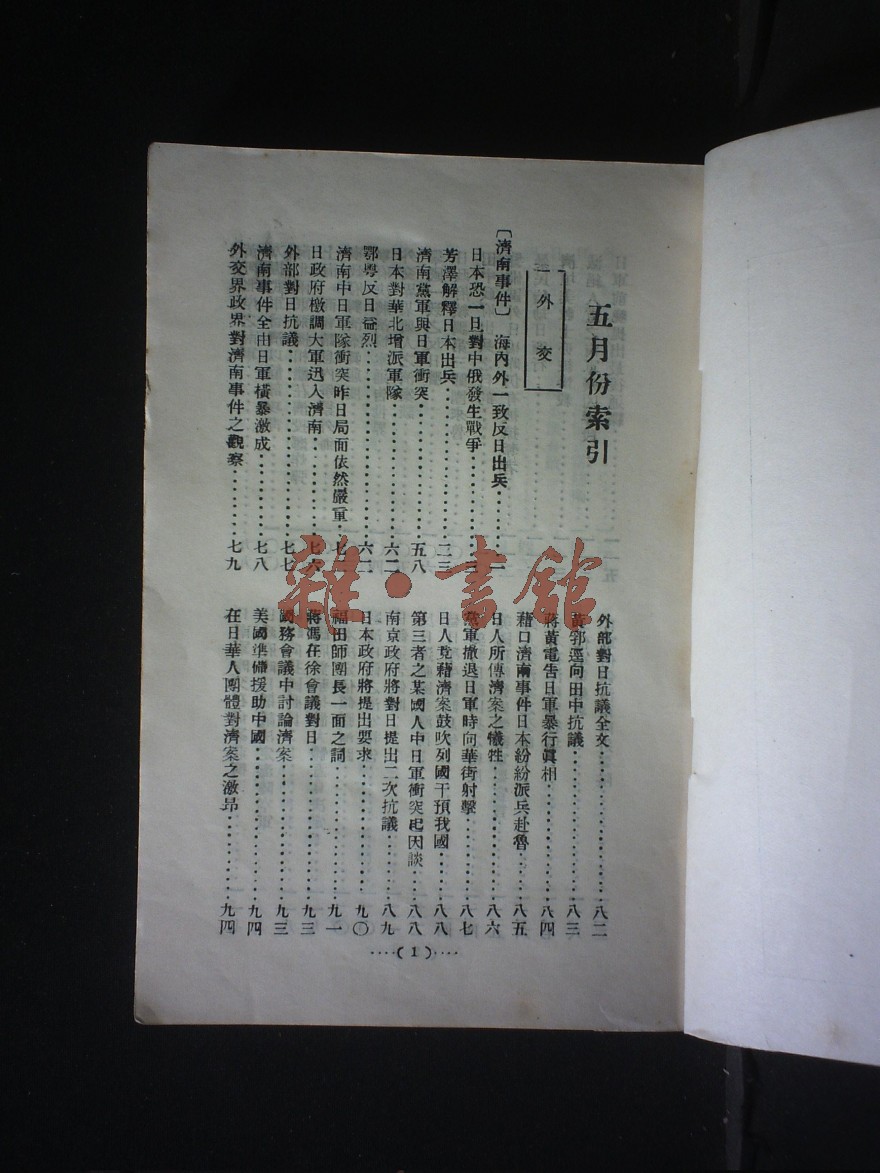 五月份索引
外交
〔濟南事件〕 海內外一致反日出兵
日本恐一旦對中俄發生戰爭
芳澤解釋日本出兵 二三
濟南黨軍與日軍衝突 五八
日本對華北增派軍隊 六二
鄂粵反日益烈 六二
濟南中日軍隊衝突昨日局面依然嚴重
日政府檄調大軍迅入濟南 七六
外部對日抗議 七七
濟南事件全由日軍橫暴激成 七八
外交界政界對濟南事件之觀察 七九
外部對日抗議全文 八二
黃郛逕向田中抗議 八三
蔣黃電告日軍暴行眞相 八四
藉口濟南事件日本紛紛派兵赴魯 八五
日人所傳濟案之犧牲 八六
黨軍撤退日軍時向華街射擊 八七
日人竟藉濟案鼓吹列國干預我國 八八
第三者之某國人中日軍衝突起因談 八八
南京政府將對日提出二次抗議 八九
日本政府將提出要求 九〇
福田師團長一面之詞 九一
蔣馮在徐會議對日 九三
國務會議中討論濟案 九三
美國準備援助中國 九四
在日華人團體對濟案之激昂 九四
(1)
雜·書館